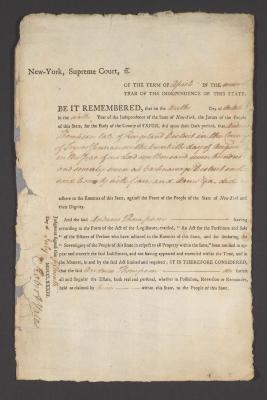 New-York, Supreme Court, ſſ.
OF THE TERM OF April IN THE
YEAR OF THE INDEPENDENCE OF THIS STATE.
BE IT REMEMBERED, that on the Day of
in the Year of the Independence of the State of New-York, the Jurors of the People
of this State, for the Body of the County of TRYON, did upon their Oath present, that
Thompson late of District in the County
of Tryon on the twentieth day of
in the Year of our Lord one thousand seven hundred
and seventy seven at District
and County with force and Arms &ca. did
adhere to the Enemies of this State, against the Peace of the People of the State of New-York and
their Dignity.
And the said Andrew Thompson having
according to the Form of the Act of the Legislature, entitled, "An Act for the Forfeiture and Sale
"of the Estates of Persons who have adhered to the Enemies of this State, and for declaring the
"Sovereignty of the People of this State in respect to all Property within the same," been notified to ap-
pear and traverse the said Indictment, and not having appeared and traversed within the Time, and in
the Manner, in and by the said Act limited and required; IT IS THEREFORE CONSIDERED,
that the said Andrew Thompson do forfeit
all and singular the Estate, both real and personal, whether in Possession, Reversion or Remainder,
held or claimed by him within this State, to the People of this State.
Day of July